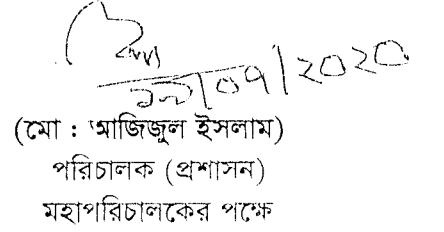 ০৭/২০২০
(মো : আজিজুল ইসলাম)
পরিচালক (প্রশাসন)
মহাপরিচালকের পক্ষে